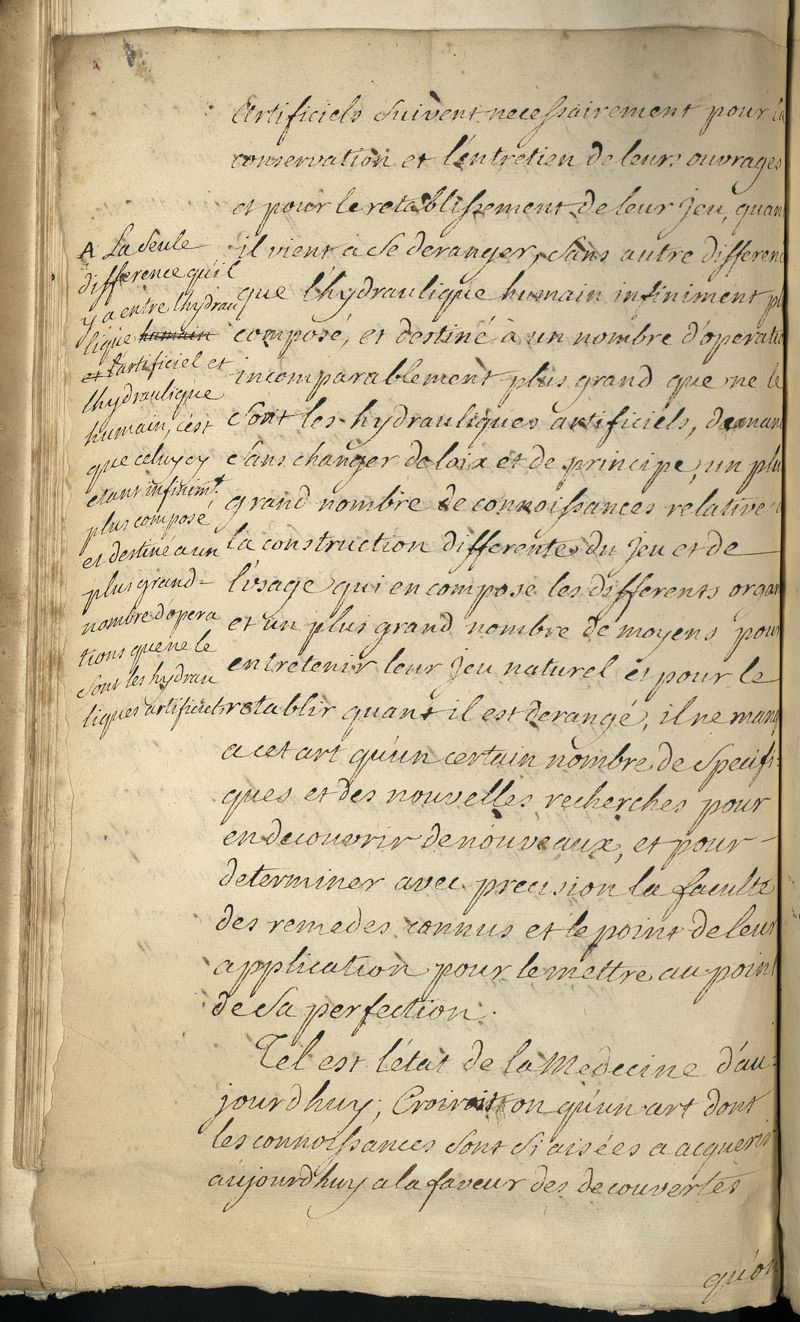 artificiels suivent necessairement pour la
conservation et l'entretien de leurs ouvrages
et pour le retablissement de leur jeu, quan
il vient a se deranger, sans autre differen
que l'hydraulique humain infiniment pl
composé, et destiné a un nombre d'operatio
incomparablement plus grand que ne le
sont les hydrauliques artificiels, deman
sans changer de loix et de principe, un plu
grand nombre de connoissances relative
la construction differente, du jeu et de
l'usage qui en compose les differents organ
et un plus grand nombre de moyens pour
entretenir leur jeu naturel et pour le
retablir quant il est derangé, il ne manq
a cet art qu'un certain nombre de specifi-
ques et des nouvelles recherches pour
en decouvrir de nouveaux, et pour
determiner avec precision la faculté
des remedes connus et le point de leur
application pour le mettre au point
de sa perfection.
Tel est l'état de la Medecine d'au-
jourdhuy, Croiroit on qu'un art dont
les connoissances sont si aisées a acquerir
aujourdhuy a la faveur des decouvertes
qu'on
A La seule
difference qu'il
y a entre lhydrau
lique humain
et l'artificiel et
lhydraulique
humain, c'est
que celuy cy
etant infinimt.
plus composé
et destiné a un
plus grand
nombre d'opera
tions que ne le
sont les hydrau
liques artificiels